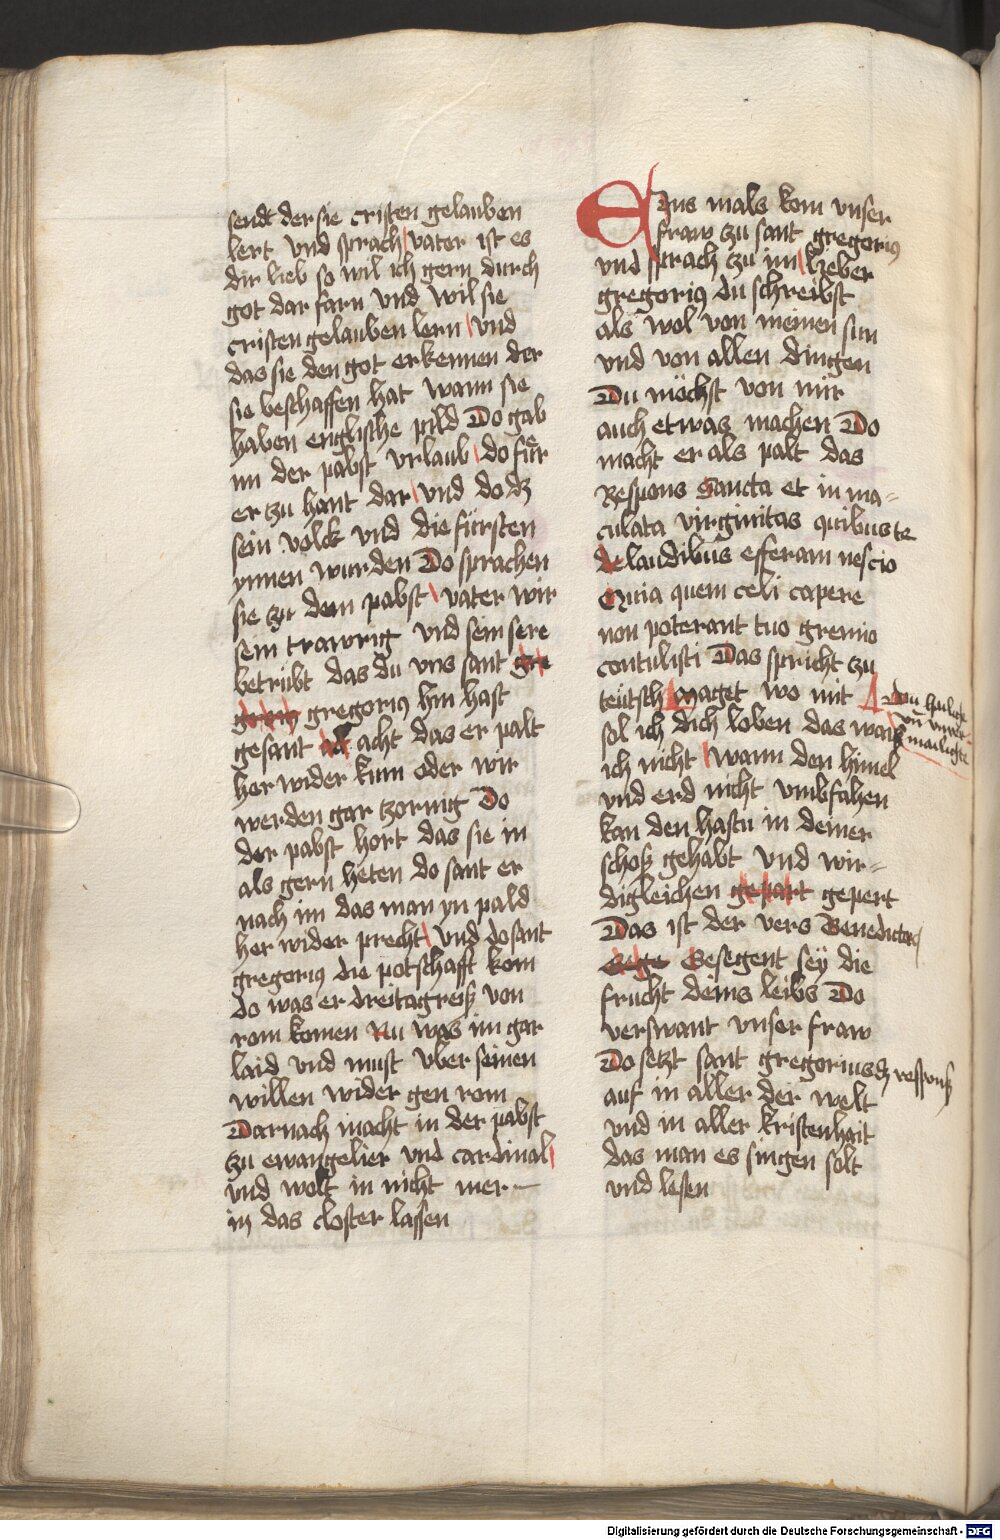 sendt der sie cristen gelauben
lert vnd sprach vater ist es
dir lieb so wil ich gern durch
got dar farn vnd wil sie
cristen gelauben lern vnd
das sie den got erkennen der
sie beschaffen hat wann sie
haben englische pild Do gab
im der pabst vrlaub do fůr
er zu hant dar vnd do dz
sein volck vnd die fürsten
ynnen wurden Do sprachen
sie zu dem pabst vater wir
sein trawrig vnd sein sere
betrübt das du vns sant gre
gorius gregorius hin hast
gesant acht das er palt
her wider kum oder wir
werden gar tzornig Do
der pabst hort das sie in
als gern heten do sant er
nach im das man yn pald
her wider precht vnd do sant
gregorius die potschafft kom
do was er dreitagreiß von
rom komen Nu was im gar
laid vnd must vber seinen
willen wider gen rom
Darnach macht in der pabst
zu ewangelier vnd cardinal
vnd wolt in nicht mer
in das closter lassen
Eins mals kom vnser
fraw zu sant gregorius
vnd sprach zu im lieber
gregorius du schreibst
als wol von meinen sun
vnd von allen dingen
Du möchst von mir
auch etwas machen Do
macht er als palt das
Respons Sancta et in ma-
culata virginitas quibus te
de laudibus efferam nescio
Quia quem celi capere
non poterant tuo gremio
contulisti Das spricht zu
teütsch maget wo mit
sol ich dich loben das waiß
ich nicht wann den himel
vnd erd nicht vmbfahen
kan den hastu in deiner
schoß gehabt vnd wir-
digleichen gepart gepert
Das ist der vers Benedicta
Gege Gesegent seÿ die
frucht deins leibs Do
verswant vnser fraw
Do setzt sant gregorius dz respons
auf in aller der welt
vnd in aller kristenhait
das man es singen solt
vnd lesen
Digitalisierung gefördert durch die Deutsche Forschungsgemeinschaft - DFG